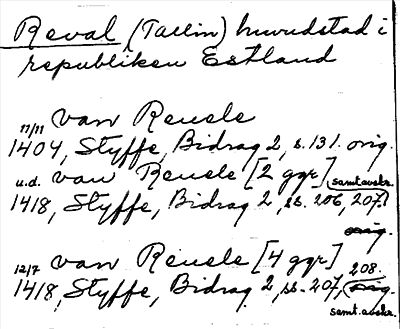 Reval (Tallin) huvudstad i
republiken Estland
van Reuele
11/11 1404, Styffe, Bidrag 2, s. 131. orig.
u.d. van Reuele [2 ggr] samt. avskr.
1418, Styffe, Bidrag 2, ss. 206, 207.
orig.
van Reuele [4 ggr] 208.
12/7 1418, Styffe, Bidrag 2, ss. 207, orig.
samt. avskr.